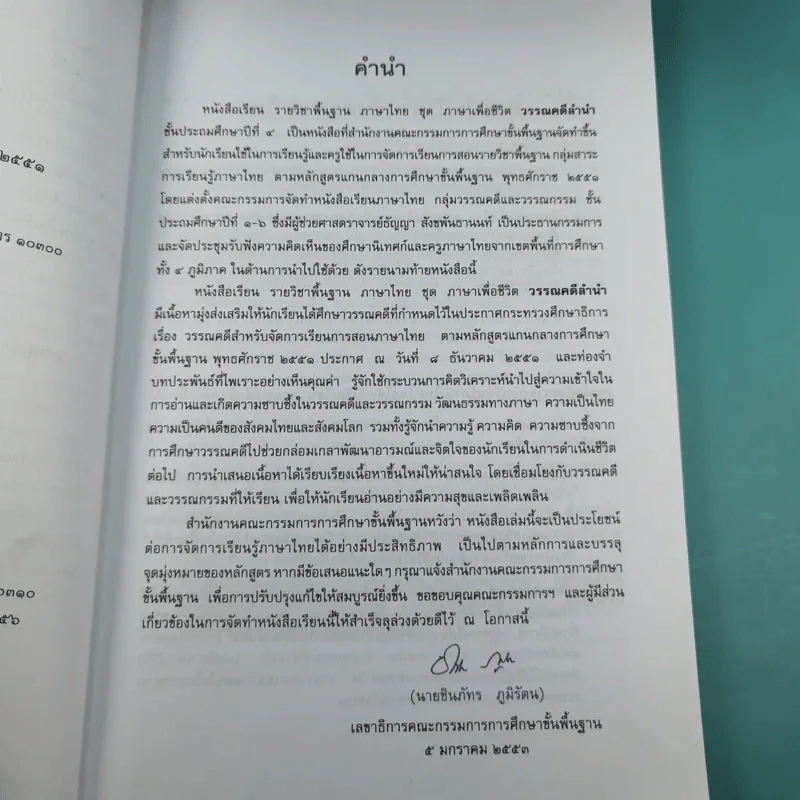 ๒๕๕๑
๑๐๓๐๐
๐๓๑๐
๕๖
คำนำ
หนังสือเรียน รายวิชาพื้นฐาน ภาษาไทย ชุด ภาษาเพื่อชีวิต วรรณคดีลำนำ
ชั้นประถมศึกษาปีที่ ๔ เป็นหนังสือที่สำนักงานคณะกรรมการการศึกษาขั้นพื้นฐานจัดทำขึ้น
สำหรับนักเรียนใช้ในการเรียนรู้และครูใช้ในการจัดการเรียนการสอนรายวิชาพื้นฐาน กลุ่มสาระ
การเรียนรู้ภาษาไทย ตามหลักสูตรแกนกลางการศึกษาขั้นพื้นฐาน พุทธศักราช ๒๕๕๑
โดยแต่งตั้งคณะกรรมการจัดทำหนังสือเรียนภาษาไทย กลุ่มวรรณคดีและวรรณกรรม ชั้น
ประถมศึกษาปีที่ ๑-๖ ซึ่งมีผู้ช่วยศาสตราจารย์ธัญญา สังขพันธานนท์ เป็นประธานกรรมการ
และจัดประชุมรับฟังความคิดเห็นของศึกษานิเทศก์และครูภาษาไทยจากเขตพื้นที่การศึกษา
ทั้ง ๔ ภูมิภาค ในด้านการนำไปใช้ด้วย ดังรายนามท้ายหนังสือนี้
หนังสือเรียน รายวิชาพื้นฐาน ภาษาไทย ชุด ภาษาเพื่อชีวิต วรรณคดีลำนำ
มีเนื้อหามุ่งส่งเสริมให้นักเรียนได้ศึกษาวรรณคดีที่กำหนดไว้ในประกาศกระทรวงศึกษาธิการ
เรื่อง วรรณคดีสำหรับจัดการเรียนการสอนภาษาไทย ตามหลักสูตรแกนกลางการศึกษา
ขั้นพื้นฐาน พุทธศักราช ๒๕๕๑ ประกาศ ณ วันที่ ๘ ธันวาคม ๒๕๕๑ และท่องจำ
บทประพันธ์ที่ไพเราะอย่างเห็นคุณค่า รู้จักใช้กระบวนการคิดวิเคราะห์นำไปสู่ความเข้าใจใน
การอ่านและเกิดความซาบซึ้งในวรรณคดีและวรรณกรรม วัฒนธรรมทางภาษา ความเป็นไทย
ความเป็นคนดีของสังคมไทยและสังคมโลก รวมทั้งรู้จักนำความรู้ ความคิด ความซาบซึ้งจาก
การศึกษาวรรณคดีไปช่วยกล่อมเกลาพัฒนาอารมณ์และจิตใจของนักเรียนในการดำเนินชีวิต
ต่อไป การนำเสนอเนื้อหาได้เรียบเรียงเนื้อหาขึ้นใหม่ให้น่าสนใจ โดยเชื่อมโยงกับวรรณคดี
และวรรณกรรมที่ให้เรียน เพื่อให้นักเรียนอ่านอย่างมีความสุขและเพลิดเพลิน
สำนักงานคณะกรรมการการศึกษาขั้นพื้นฐานหวังว่า หนังสือเล่มนี้จะเป็นประโยชน์
ต่อการจัดการเรียนรู้ภาษาไทยได้อย่างมีประสิทธิภาพ เป็นไปตามหลักการและบรรลุ
จุดมุ่งหมายของหลักสูตร หากมีข้อเสนอแนะใดๆ กรุณาแจ้งสำนักงานคณะกรรมการการศึกษา
ขั้นพื้นฐาน เพื่อการปรับปรุงแก้ไขให้สมบูรณ์ยิ่งขึ้น ขอขอบคุณคณะกรรมการฯ และผู้มีส่วน
เกี่ยวข้องในการจัดทำหนังสือเรียนนี้ให้สำเร็จลุล่วงด้วยดีไว้ ณ โอกาสนี้
(นายชินภัทร ภูมิรัตน)
เลขาธิการคณะกรรมการการศึกษาขั้นพื้นฐาน
๕ มกราคม ๒๕๕๓